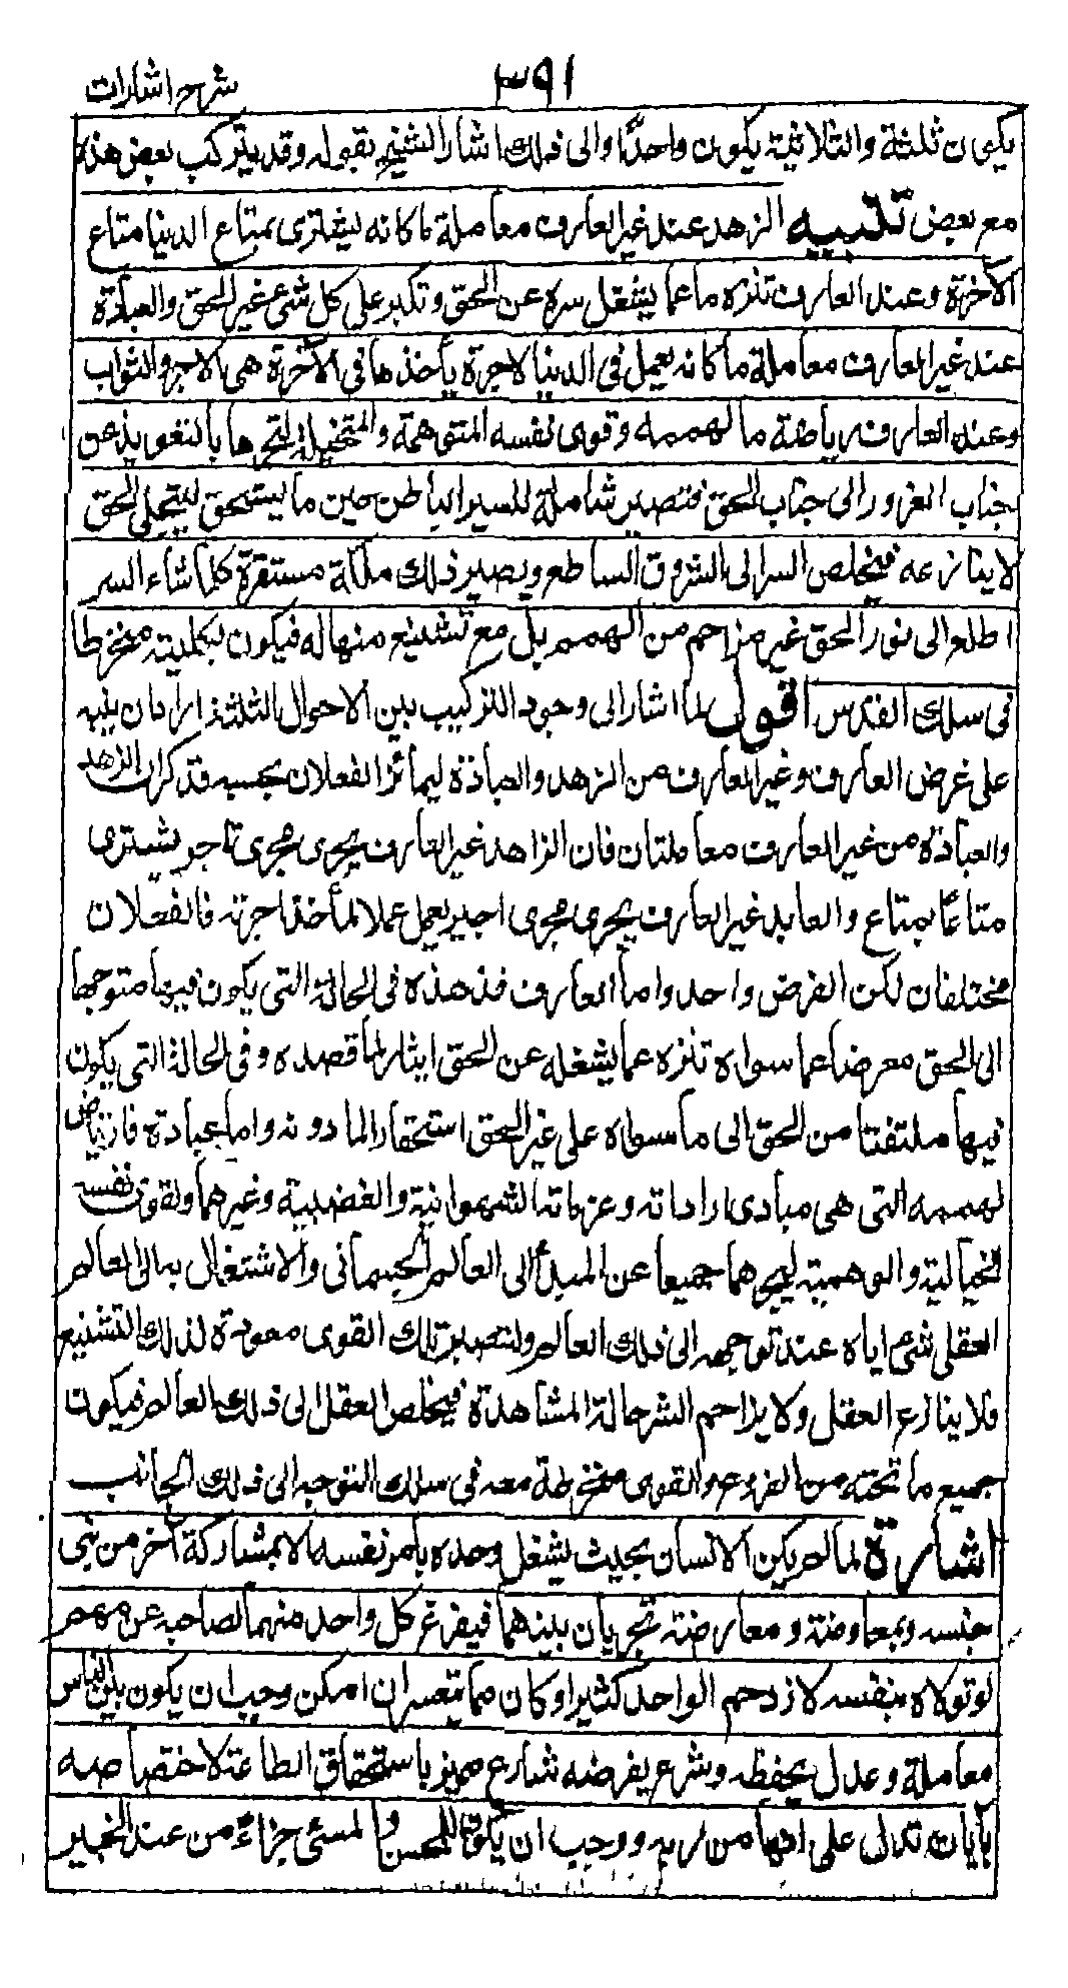 شرح اشارات
٣٩١
يكون ثلثة والثلاثية يكون واحدًا والى ذلك اشار الشيخ بقوله وقد يتركب بعض هذه
مع بعض تنبيه الزهد عند غير العارف معاملة ما كانه يشترى بمتاع الدنيا متاع
الآخرة وعند العارف تنزه ما عما يشغل سره عن الحق وتكبر على كل شئ غير الحق والعبادة
عند غير العارف معاملة ما كانه يعمل فى الدنيا لاجرة يأخذها فى الآخرة هى الاجر والثواب
وعند العارف رياضة ما لهممه وقوى نفسه المتوهمة والمتخيلة ليجرها بالتعويذ عن
جناب الغرور الى جناب الحق فتصير شاملة للسير الباطن حين ما يستحق ليتجلى الحق
لا ينازعه فيخلص السر الى الشروق الساطع ويصير ذلك ملكة مستقرة كلما شاء السر
اطلع الى نور الحق غير مزاحم من الهمم بل مع تشنيع منها له فيكون بكليته منخرطا
فى سلك القدس اقول لما اشار الى وجود التركيب بين الاحوال الثلثة اراد ان ينبه
على غرض العارف وغير العارف من الزهد والعبادة ليمائز الفعلان بحسبه فذكر ان الزهد
والعبادة من غير العارف معاملتان فان الزاهد غير العارف يجرى مجرى تاجر يشترى
متاعًا بمتاع والعابد غير العارف يجرى مجرى اجير يعمل عملا لمأخذ اجرته فالفعلان
مختلفان لكن الغرض واحد واما العارف فزهده فى الحالة التى يكون فيها متوجها
الى الحق معرضا عما سواه تنزه عما يشغله عن الحق ايثارا لما قصده وفى الحالة التى يكون
فيها ملتفتا من الحق الى ما سواه على غير الحق استحقارا لما دونه واما عبادته فارتياض
لهممه التى هى مبادى اراداته وعزماته الشهوانية والغضبية وغيرهما ولقوى نفسه
الخيالية والوهمية ليجرها جميعا عن الميل الى العالم الجسمانى والاشتغال به الى العالم
العقلى شئ اياه عند توجهه الى ذلك العالم ولتصير تلك القوى معودة لذلك التشنيع
فلا ينازع العقل ولا يزاحم السر حالة المشاهدة فيخلص العقل الى ذلك العالم فيكون
جميع ما تحته من الفروع والقوى منخرطة معه فى سلك التوجه الى ذلك الجانب
اشارة لما لم يكن الانسان بحيث يشغل وحده بأمر نفسه الا بمشاركة آخر من بنى
جنسه وبمعاوضة ومعارضة تجريان بينهما فيفرغ كل واحد منهما لصاحبه عن مهم
لو تولاه بنفسه لازدحم الواحد كثير او كان مما يتعسر ان امكن وجب ان يكون بين الناس
معاملة وعدل يحفظه وشرع يفرضه شارع مميز باستحقاق الطاعة لاختصاصه
بآيات تدل على انها من ربه ووجب ان يكون للمحسن والمسئ جزاء من عند الخبير